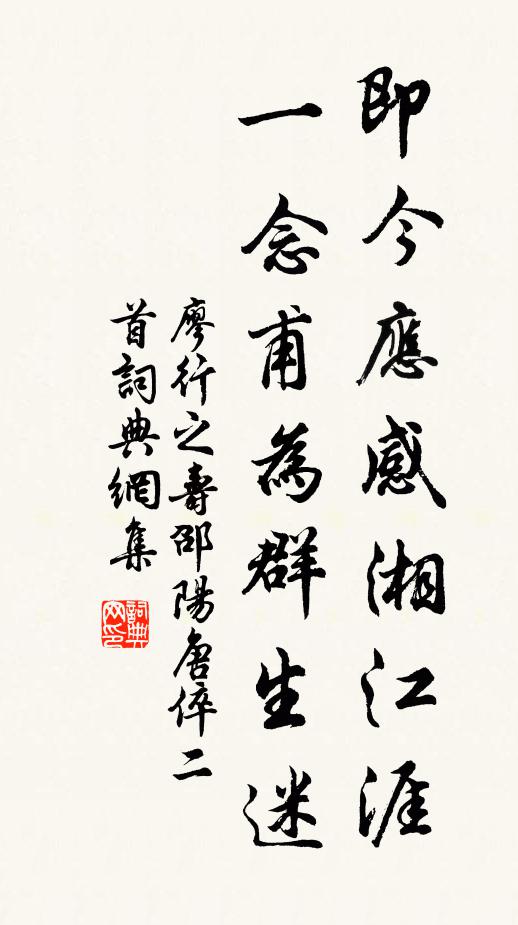 即今應感湘江涯
一念甫為群生迷
廖行之壽邵陽唐倅二
首詞典網集
詞典
网印